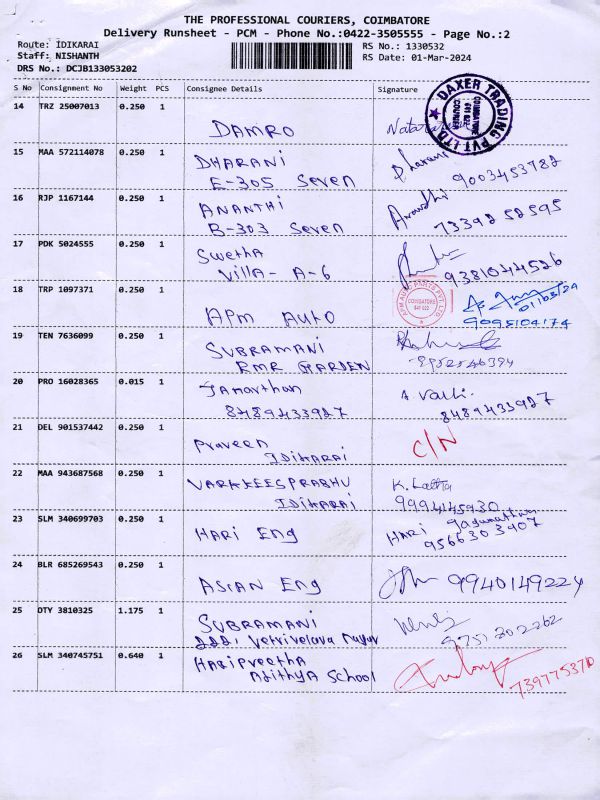 THE PROFESSIONAL COURIERS, COIMBATORE
Delivery Runsheet - PCM - Phone No.:0422-3505555 - Page No.:2
Route: IDIKARAI
RS No.: 1330532
Staff: NISHANTH
RS Date: 01-Mar-2024
DRS No.: DCJB133053202
S No Consignment No Weight PCS Consignee Details Signature
14 TRZ 25007013 0.250 1
DAMRO
DAXER TRADING PVT LTD
15 MAA 572114078 0.250 1
DHARANI Dharani
E-305 Seven 9003453782
16 RJP 1167144 0.250 1
ANANTHI
B-303 Seven 7339252595
17 PDK 5024555 0.250 1
Swetha
Villa- A-6 9381044526
18 TRP 1097371 0.250 1
APM AUTO 01/03/24
COIMBATORE
9095104174
19 TEN 7636099 0.250 1
SUBRAMANI
RMR GARDEN
20 PRO 16028365 0.015 1
Janarthan A Valli.
8489433927 8489433927
21 DEL 901537442 0.250 1
Praveen C/N
IDIKARAI
22 MAA 943687568 0.250 1
VARKEESPRABHU K. Latha
IDIKARAI 9994145930
23 SLM 340699703 0.250 1
HARI Eng HARI
9566303907
24 BLR 685269543 0.250 1
ASIAN Eng 9940149224
25 OTY 3810325 1.175 1
SUBRAMANI
9751202262
26 SLM 340745751 0.640 1
HARIPreetha
Adithya School